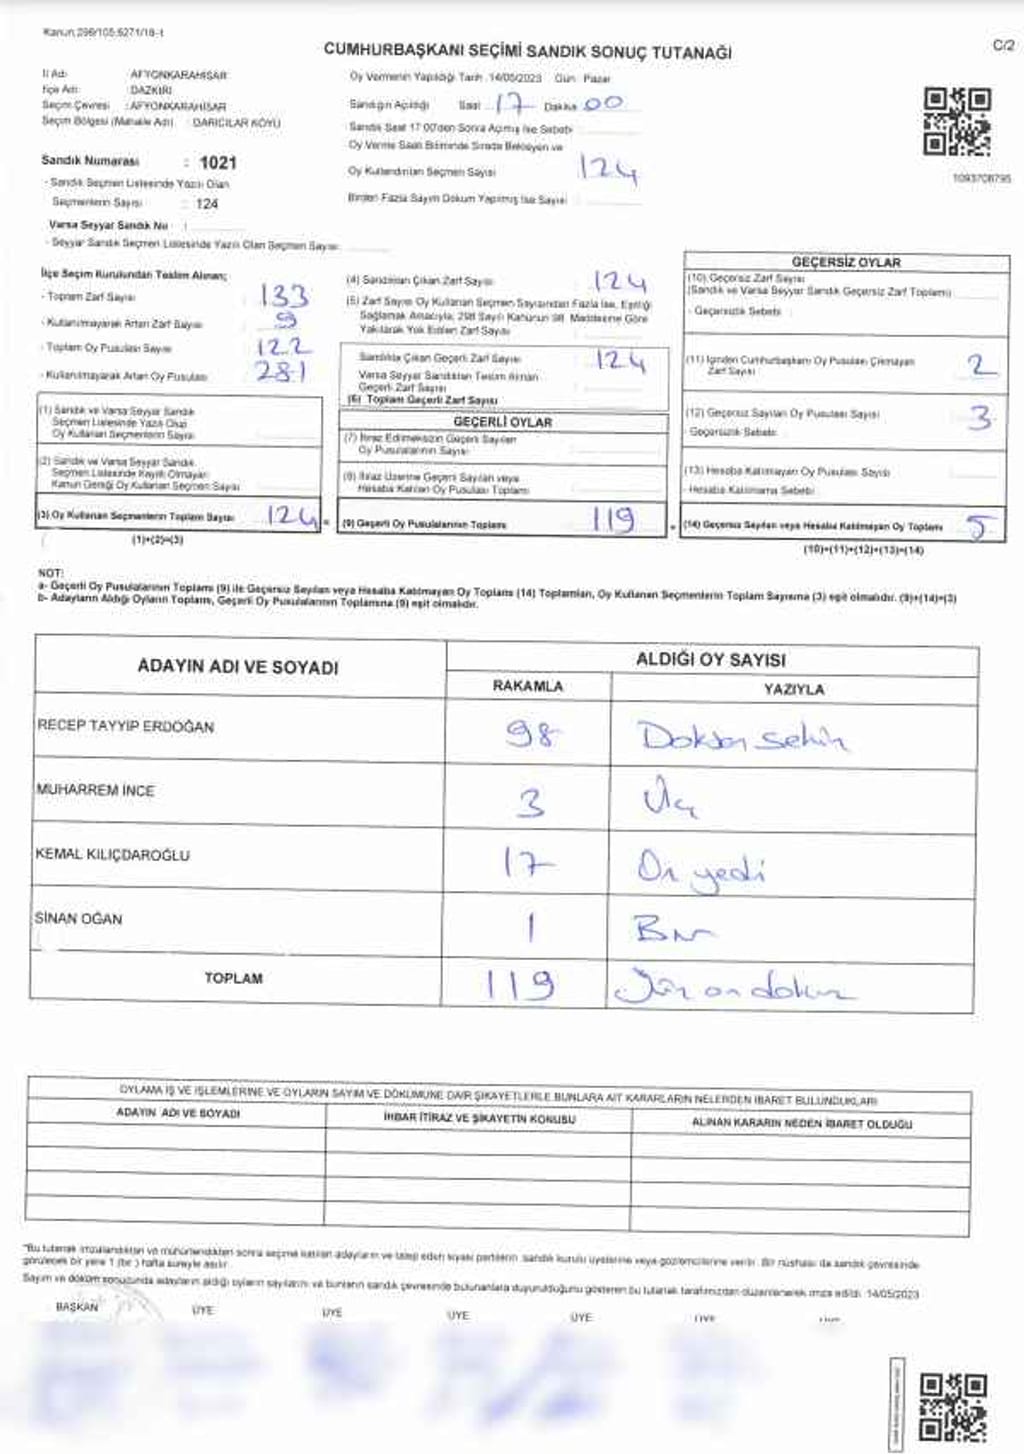 Kanun 298/105;6271/18-1
C/2
CUMHURBAŞKANI SEÇİMİ SANDIK SONUÇ TUTANAĞI
İl Adı : AFYONKARAHİSAR
İlçe Adı : DAZKIRI
Seçim Çevresi : AFYONKARAHİSAR
Seçim Bölgesi (Mahalle Adı) : DARICILAR KÖYÜ
Sandık Numarası : 1021
- Sandık Seçmen Listesinde Yazılı Olan
Seçmenlerin Sayısı : 124
Varsa Seyyar Sandık No :
- Seyyar Sandık Seçmen Listesinde Yazılı Olan Seçmen Sayısı
Oy Vermenin Yapıldığı Tarih : 14/05/2023 Gün : Pazar
Sandığın Açıldığı Saat : 17 Dakika 00
Sandık Saat 17.00'den Sonra Açılmış İse Sebebi
Oy Verme Saati Bitiminde Sırada Bekleyen ve
Oy Kullandırılan Seçmen Sayısı 124
Birden Fazla Sayım Döküm Yapılmış İse Sayısı
1093708795
İlçe Seçim Kurulundan Teslim Alınan;
- Toplam Zarf Sayısı 133
- Kullanılmayarak Artan Zarf Sayısı 9
- Toplam Oy Pusulası Sayısı 122
- Kullanılmayarak Artan Oy Pusulası 281
(1) Sandık ve Varsa Seyyar Sandık
Seçmen Listesinde Yazılı Olup
Oy Kullanan Seçmenlerin Sayısı
(2) Sandık ve Varsa Seyyar Sandık
Seçmen Listesinde Kayıtlı Olmayan
Kanun Gereği Oy Kullanan Seçmen Sayısı
(3) Oy Kullanan Seçmenlerin Toplam Sayısı 124 =
(1)+(2)=(3)
(4) Sandıktan Çıkan Zarf Sayısı 124
(5) Zarf Sayısı Oy Kullanan Seçmen Sayısından Fazla İse, Eşitliği
Sağlamak Amacıyla, 298 Sayılı Kanunun 98. Maddesine Göre
Yakılarak Yok Edilen Zarf Sayısı
Sandıkta Çıkan Geçerli Zarf Sayısı 124
Varsa Seyyar Sandıktan Teslim Alınan
Geçerli Zarf Sayısı
(6) Toplam Geçerli Zarf Sayısı
GEÇERLİ OYLAR
(7) İtiraz Edilmeksizin Geçerli Sayılan
Oy Pusulalarının Sayısı
(8) İtiraz Üzerine Geçerli Sayılan veya
Hesaba Katılan Oy Pusulası Toplamı
(9) Geçerli Oy Pusulalarının Toplamı 119 +
GEÇERSİZ OYLAR
(10) Geçersiz Zarf Sayısı
(Sandık ve Varsa Seyyar Sandık Geçersiz Zarf Toplamı)
- Geçersizlik Sebebi :
(11) İçinden Cumhurbaşkanı Oy Pusulası Çıkmayan
Zarf Sayısı 2
(12) Geçersiz Sayılan Oy Pusulası Sayısı 3
- Geçersizlik Sebebi :
(13) Hesaba Katılmayan Oy Pusulası Sayısı
- Hesaba Katılmama Sebebi :
(14) Geçersiz Sayılan veya Hesaba Katılmayan Oy Toplamı 5
(10)+(11)+(12)+(13)=(14)
NOT:
a- Geçerli Oy Pusulalarının Toplamı (9) ile Geçersiz Sayılan veya Hesaba Katılmayan Oy Toplamı (14) Toplamları, Oy Kullanan Seçmenlerin Toplam Sayısına (3) eşit olmalıdır. (9)+(14)=(3)
b- Adayların Aldığı Oyların Toplamı, Geçerli Oy Pusulalarının Toplamına (9) eşit olmalıdır.
ADAYIN ADI VE SOYADI
ALDIĞI OY SAYISI
RAKAMLA YAZIYLA
RECEP TAYYİP ERDOĞAN 98 Doksan sekiz
MUHARREM İNCE 3 Üç
KEMAL KILIÇDAROĞLU 17 On yedi
SİNAN OĞAN 1 Bir
TOPLAM 119 Yüz on dokuz
OYLAMA İŞ VE İŞLEMLERİNE VE OYLARIN SAYIM VE DÖKÜMÜNE DAİR ŞİKAYETLERLE BUNLARA AİT KARARLARIN NELERDEN İBARET BULUNDUKLARI
ADAYIN ADI VE SOYADI İHBAR İTİRAZ VE ŞİKAYETİN KONUSU ALINAN KARARIN NEDEN İBARET OLDUĞU
"Bu tutanak imzalandıktan ve mühürlendikten sonra seçime katılan adayların ve talep eden siyasi partilerin sandık kurulu üyelerine veya gözlemcilerine verilir. Bir nüshası da sandık çevresinde
görülecek bir yere 1 (bir) hafta süreyle asılır.
Sayım ve döküm sonucunda adayların aldığı oyların sayılarını ve bunların sandık çevresinde bulunanlara duyurulduğunu gösteren bu tutanak tarafımızdan düzenlenerek imza edildi. 14/05/2023
BAŞKAN ÜYE ÜYE ÜYE ÜYE ÜYE